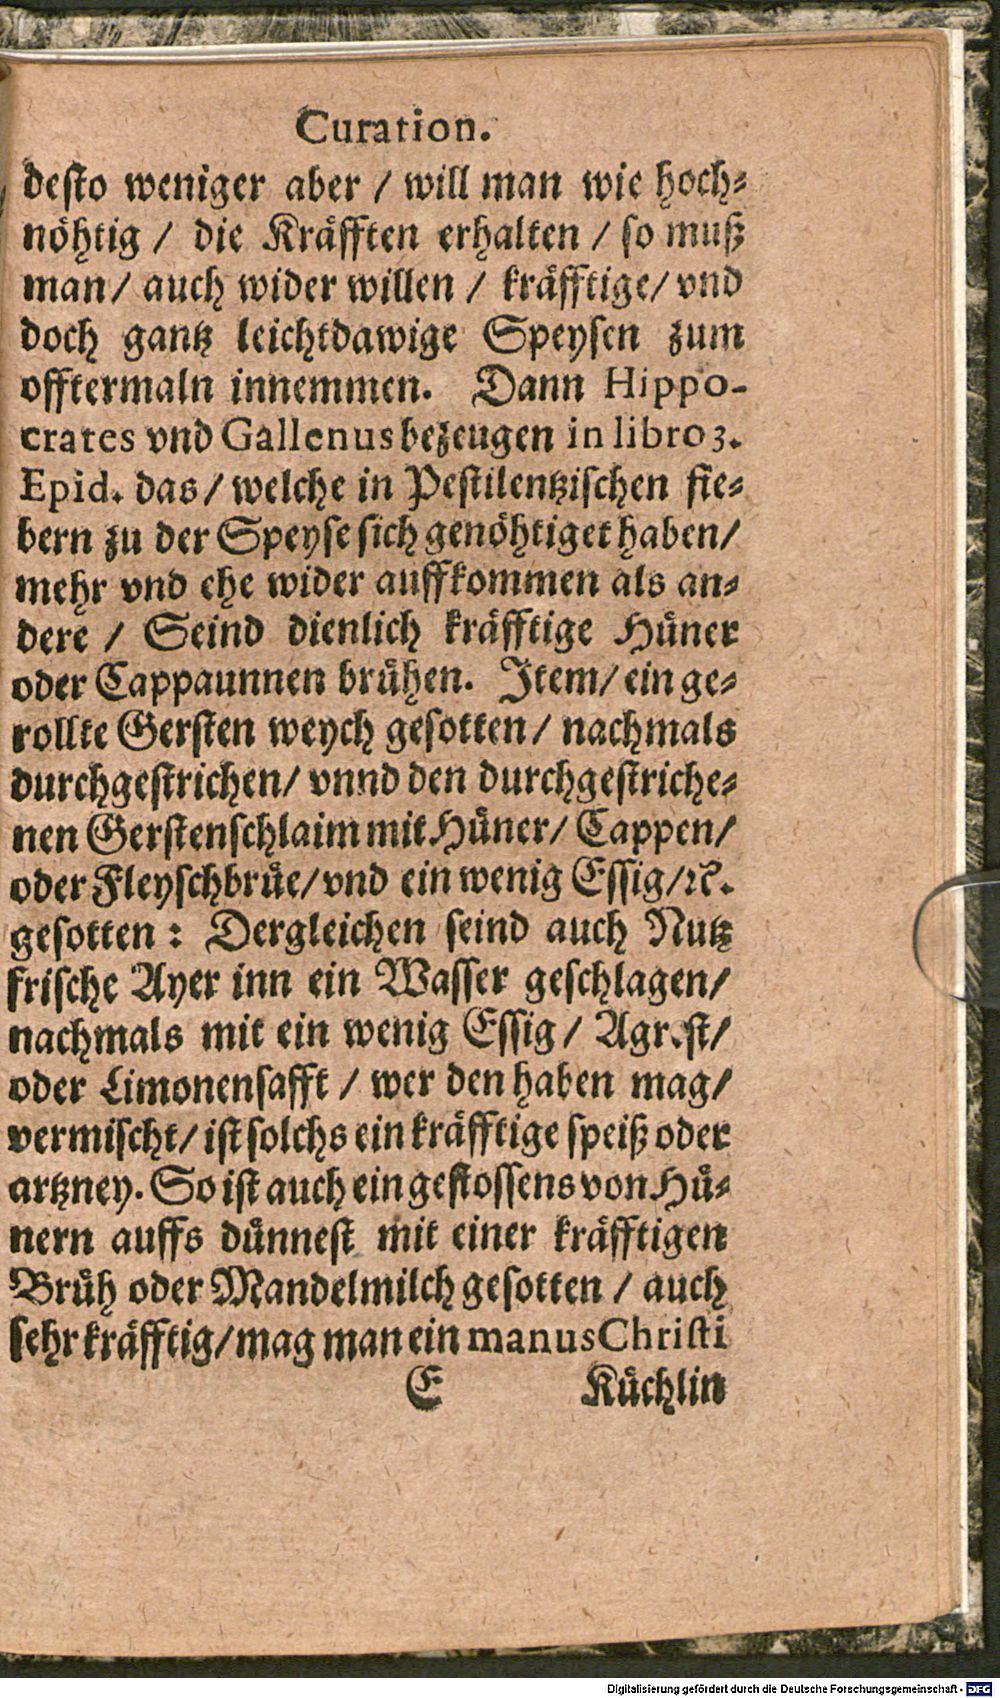 Curation.
desto weniger aber / will man wie hoch⸗
nöhtig / die Kräfften erhalten / so muß
man / auch wider willen / kräfftige / vnd
doch gantz leichtdawige Speysen zum
offtermaln innemmen. Dann Hippo-
crates vnd Gallenus bezeugen in libro 3.
Epid. das / welche in Pestilentzischen fie⸗
bern zu der Speyse sich genöhtiget haben /
mehr vnd ehe wider auffkommen als an⸗
dere / Seind dienlich kräfftige Hüner
oder Cappaunnen brühen. Item / ein ge⸗
rollte Gersten weych gesotten / nachmals
durchgestrichen / vnnd den durchgestriche⸗
nen Gerstenschlaim mit Hüner / Cappen /
oder Fleyschbrüe / vnd ein wenig Essig / ꝛc.
gesotten : Dergleichen seind auch Nutz
frische Ayer inn ein Wasser geschlagen /
nachmals mit ein wenig Essig / Agrest /
oder Limonensafft / wer den haben mag /
vermischt / ist solchs ein kräfftige speiß oder
artzney. So ist auch ein gestossens von Hü⸗
nern auffs dünnest mit einer kräfftigen
Brüh oder Mandelmilch gesotten / auch
sehr kräfftig / mag man ein manus Christi
E Küchlin
Digitalisierung gefördert durch die Deutsche Forschungsgemeinschaft - DFG